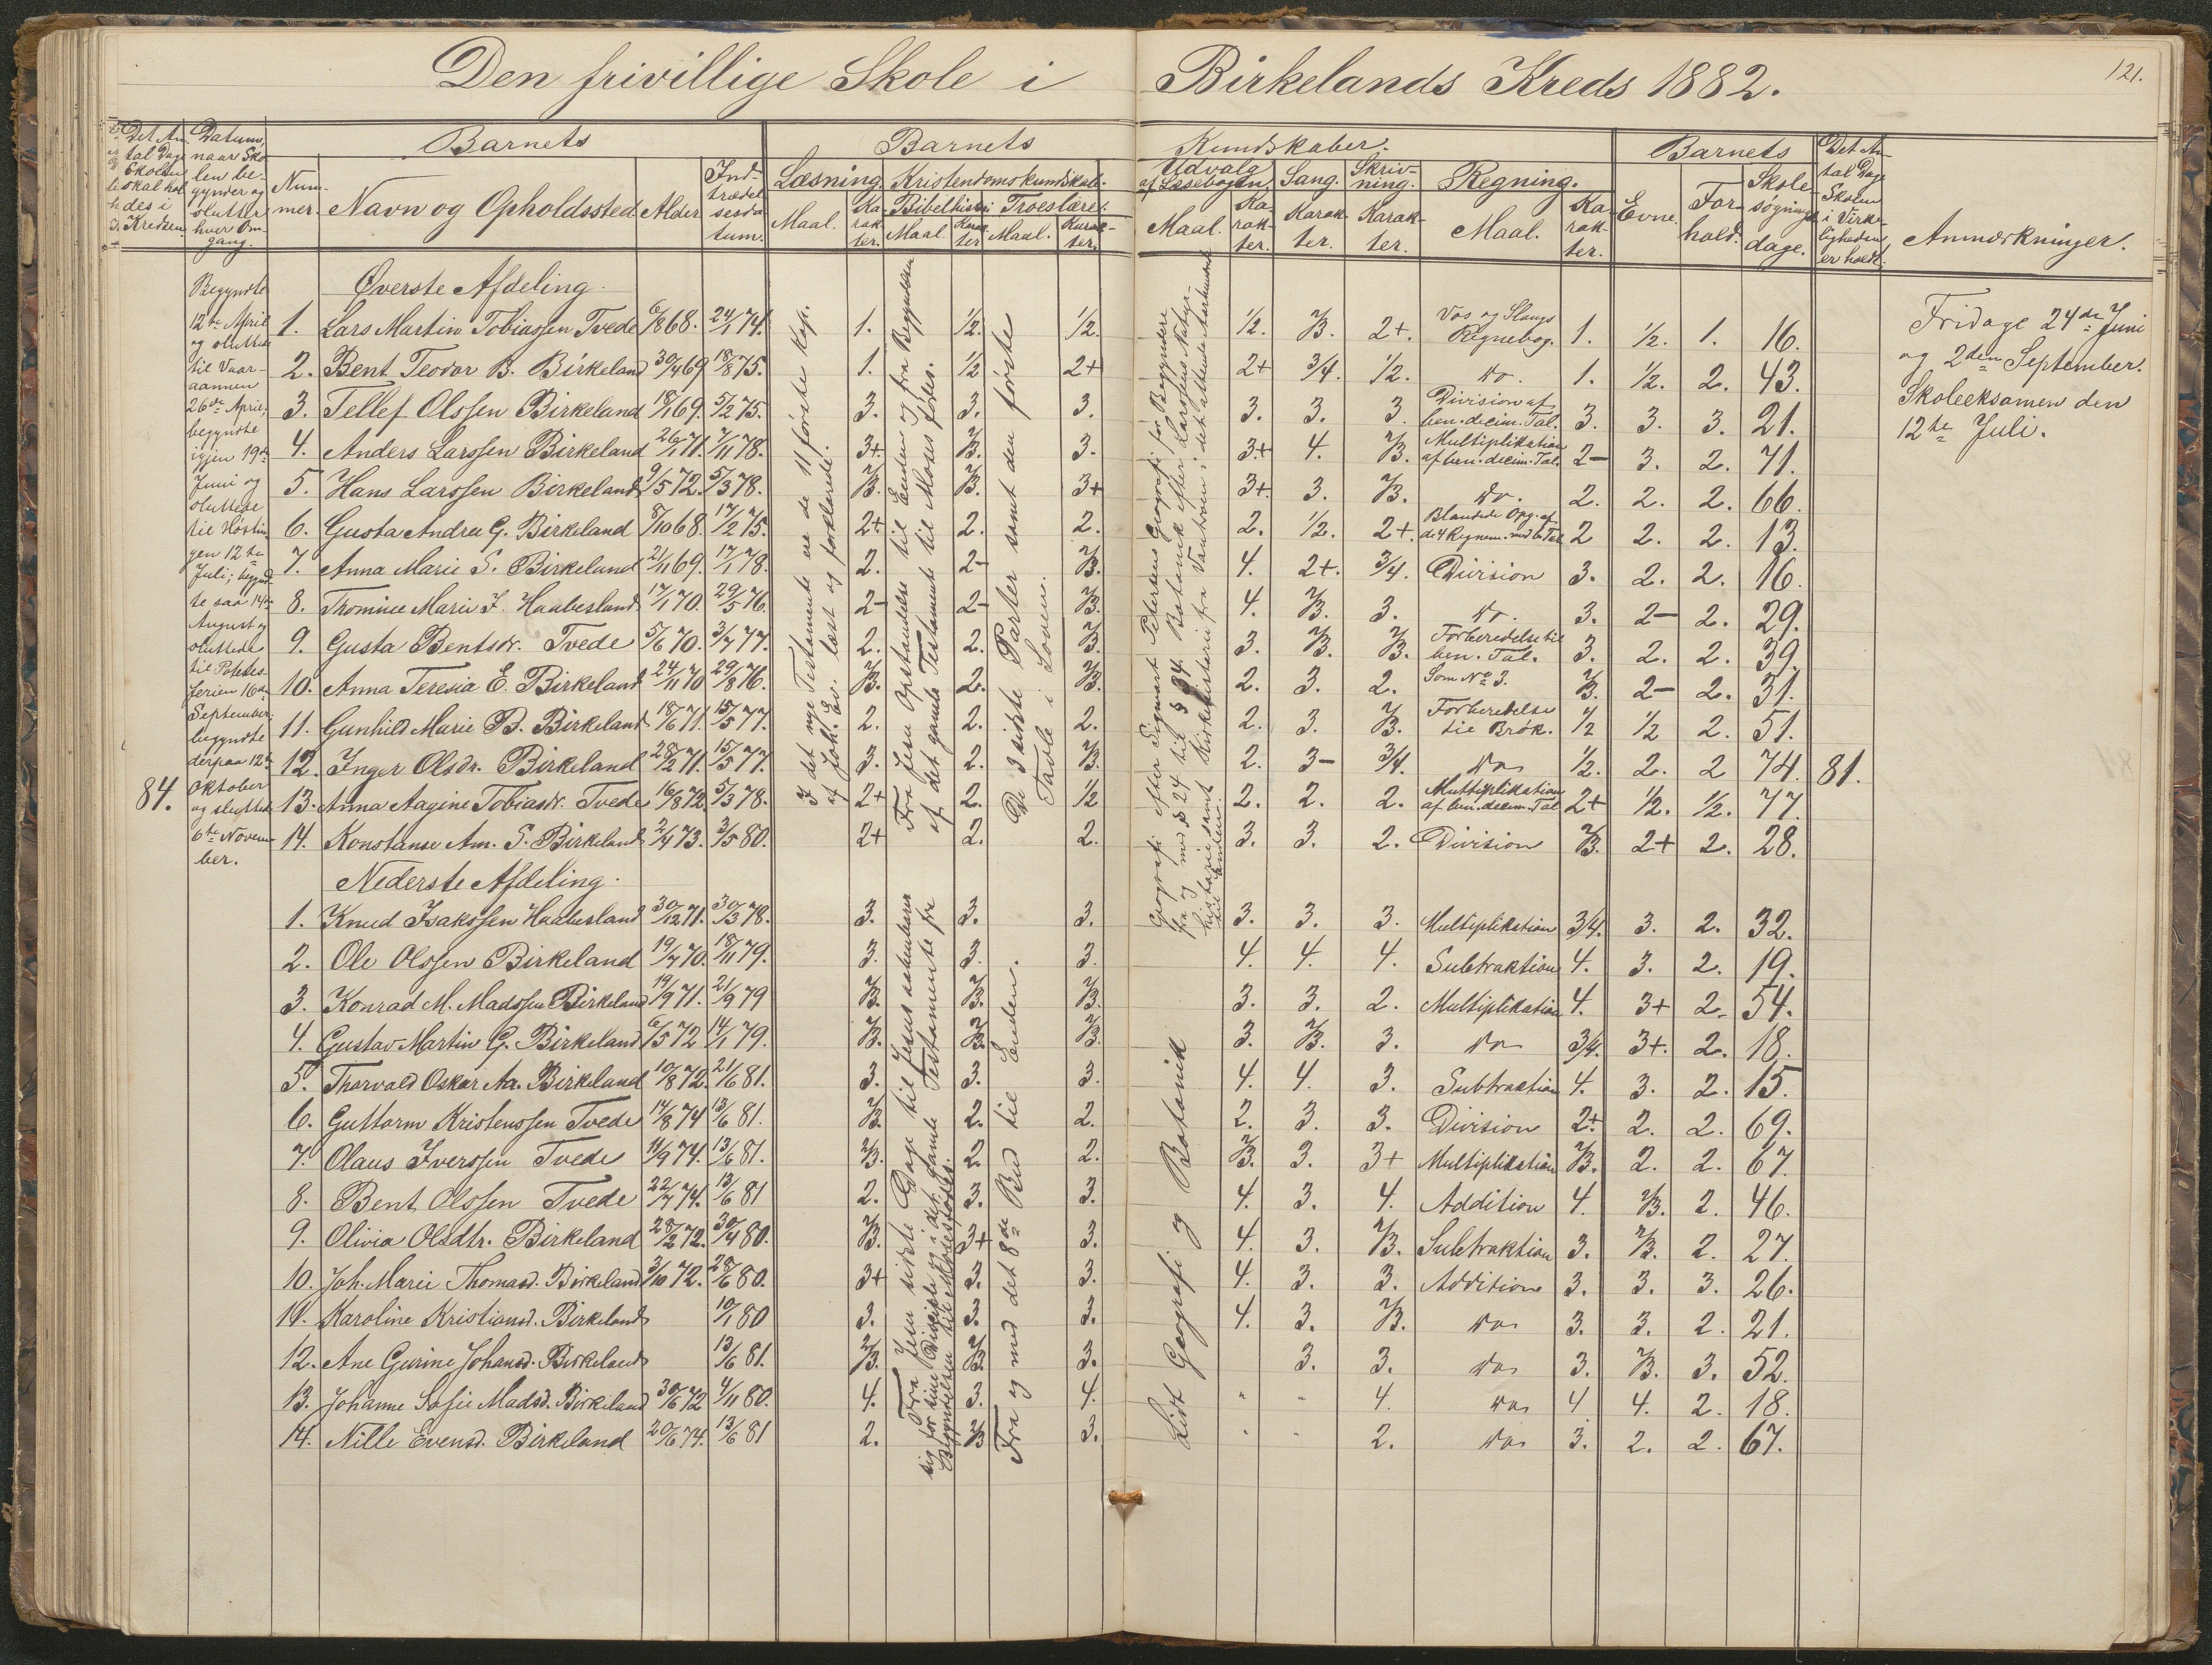 Den frivillige Skole i Birkelands Kreds 1882.
121.
Det An- tal Dage Skolen skal hol des i Kredsen.
Datum, naar Sko- len be- gynder og slutter hver Om- gang.
Barnets
Num- mer. Navn og Opholdssted Alder Ind- trædel sesda tum.
Barnets Kundskaber.
Læsning. Maal. Ka- rak- ter.
Kristendomskundskab.
Bibelhistori Maal. Karak ter
Troeslære. Maal. Karak- ter.
Udvalg af Læsebogen. Maal. Ka- rak- ter.
Sang. Karak- ter.
Skriv- ning. Karak- ter.
Regning. Maal. Ka- rak- ter.
Barnets
Evne. For- hold. Skole- søgnings dage.
Det An- tal Dage Skolen i Virke- ligheden er holdt.
Anmærkninger.
84.
Begyndte
12te April
og sluttede
til Vaar-
aannen
26de April;
begyndte
igjen 19de
Juni og
sluttede
til Høstin-
gen 12te
Juli; begynd-
te saa 14de
August og
sluttede
til Potetes-
ferien 16de
September;
begyndte
derpaa 12te
Oktober
og sluttede
6te Novem-
ber.
Øverste Afdeling.
1. Lars Martin Tobiassen Tvede 6/8 68. 24/1 74. 1. 1/2. 1/2. 1/2. 2/3. 2+. Vos og Slangs Regnebog. 1. 1/2. 1. 16.
2. Bent Teodor B. Birkeland 30/4 69 18/8 75. 1. 1/2 2+ 2+ 3/4. 1/2. do. 1. 1/2. 2. 43.
3. Tellef Olssen Birkeland 18/1 69. 5/2 75. 3. 3. 3. 3. 3. 3. Division af ben. decim. Tal. 3. 3. 3. 21.
4. Anders Larssen Birkeland 26/1 71. 7/11 78. 3+. 2/3. 3. 3+ 4. 2/3. Multiplikation af ben. decim. Tal. 2- 3. 2. 71.
5. Hans Larssen Birkeland 9/5 72. 5/3 78. 2/3. 2/3. 3+ 3+. 3. 2/3. do. 2. 2. 2. 66.
6. Gusta Andrea G. Birkeland 8/10 68. 17/2 75. 2+ 2. 2. 2. 1/2. 2+. Blandede Opg. af de 4 Regnem. med b. Tal 2 2. 2. 13.
7. Anna Marie S. Birkeland 21/11 69. 17/1 78. 2. 2- 2/3. 4. 2+. 3/4. Division 3. 2. 2. 16.
8. Tromine Marie J. Haabesland 17/1 70. 29/5 76. 2- 2- 2/3. 4. 2/3. 3. do. 3. 2- 2. 29.
9. Gusta Bentsdr. Tvede 5/6 70. 3/7 77. 2. 2. 2/3. 3. 2/3. 2/3. Forberedelse til ben. Tal. 3. 2. 2. 39.
10. Anna Teresia E. Birkeland 24/11 70 29/8 76. 2/3. 2. 2/3. 2. 3. 2. Som No 3. 2/3. 2- 2. 31.
11. Gunhild Marie B. Birkeland 18/6 71. 15/5 77. 2. 2. 2. 2. 3. 2/3. Forberedelse til Brøk. 1/2 1/2 2. 51.
12. Inger Olsdr. Birkeland 28/2 71. 15/5 77. 3. 2. 2/3. 2. 3- 3/4. do 1/2. 2. 2 74. 81.
13. Anna Aagine Tobiasdr. Tvede 16/8 72. 5/3 78. 2+ 2. 1/2 2. 2. 2. Multiplikation af ben. decim. Tal 2+ 1/2. 1/2. 77.
14. Konstanse Am. S. Birkeland 2/4 73. 3/5 80. 2+ 2. 2. 3. 3. 2. Division 2/3. 2+ 2. 28.
I det nye Testamente ere de 11 første Kap.
af Joh. Ev. læst og forklarede.
Fra Jesu Opstandelse til Enden og fra Begyndelsen
af det gamle Testamente til Moses fødes.
De 3 sidste Parter samt den første
Tavle i Loven.
Geografi efter Sigvart Petersens Geografi for Begyndere
fra og med § 24 til § 34. Botanik efter Larsens Natur-
historie samt Kirkehistorie fra Vantroen i det attende Aarhundrede
til Enden.
Nederste Afdeling.
1. Knud Isakssen Haabesland 30/12 71. 30/3 78. 3. 3. 3. 3. 3. 3. Multiplikation 3/4. 3. 2. 32.
2. Ole Olssen Birkeland 19/7 70. 18/11 79. 3. 3. 3. 4. 4. 4. Subtraktion 4. 3. 2. 19.
3. Konrad M. Madssen Birkeland 19/9 71. 21/9 79 2/3. 2/3. 2/3. 3. 3. 2. Multiplikation 4. 3+ 2. 54.
4. Gustav Martin G. Birkeland 6/5 72 14/1 79. 2/3. 2/3. 2/3. 3. 2/3. 3. do 3/4. 3+. 2. 18.
5. Thorvald Oskar Aa. Birkeland 10/8 72. 21/6 81. 3. 3. 3. 4. 4. 3. Subtraktion 4. 3. 2. 15.
6. Guttorm Kristenssen Tvede 14/8 74 13/6 81. 2/3. 2. 2. 2. 3. 3. Division 2+ 2. 2. 69.
7. Olaus Iverssen Tvede 11/9 74. 13/6 81. 2/3. 2. 2. 2/3. 3. 3+ Multiplikation 2/3. 2. 2. 67.
8. Bent Olssen Tvede 22/7 74. 13/6 81 2. 3. 3. 4. 3. 4. Addition 4. 2/3. 2. 46.
9. Olivia Olsdtr. Birkeland 28/2 72. 30/4 80. 2/3. 3+ 3. 4. 3. 2/3. Subtraktion 3. 2/3. 2. 27.
10. Joh. Marie Thomasd. Birkeland 3/10 72. 28/6 80. 3+ 3. 3. 4. 3. 3. Addition 3. 3. 3. 26.
11. Karoline Kristiansd. Birkeland 10/1 80 3. 3. 3. 4. 3. 2/3. do 3. 3. 2. 21.
12. Ane Gurine Johansd. Birkeland 13/6 81. 2/3. 2/3. 3. 3. 3. do 3. 2/3. 3. 52.
13. Johanne Sofie Madsd. Birkeland 30/6 72 4/11 80. 4. 3. 4. " " 4. do 4 4. 2. 18.
14. Nille Evensd. Birkeland 20/6 74. 13/6 81 2. 2/3 3. " " 2. do 3. 2. 2. 67.
Fra Jesu sidste Dage til Jesus aabenbarer
sig for sine Disciple og i det gamle Testamente fra
Begyndelsen til Moses fødes.
Fra og med det 8de Bud til Enden.
Lidt Geografi og Botanik
Fridage 24de Juni
og 2den September.
Skoleeksamen den
12te Juli.